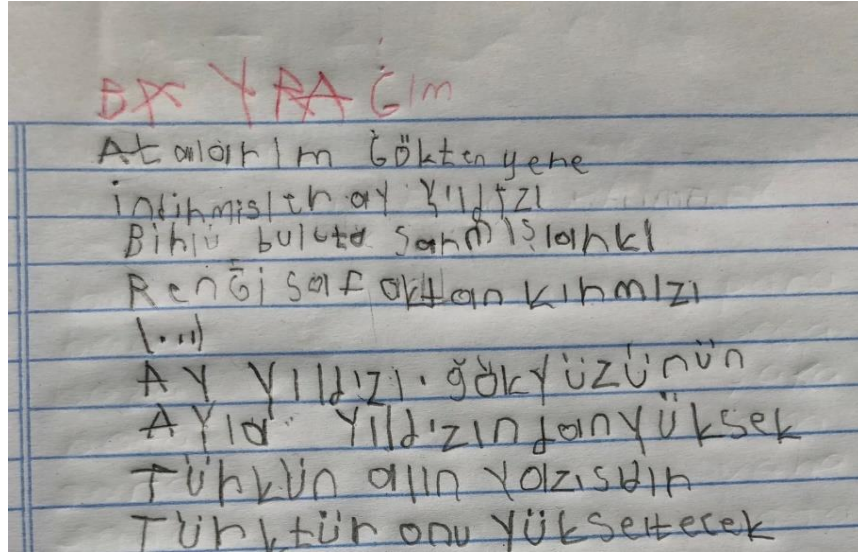 BAYRAĞIM
Atalarım Gökten yere
indirmişler ay yıldızı
Birlu buluta sarmışlarki
Renği şafaktan kırmızı
(...)
AY Yıldızı. gökyüzünün
AYla Yıldızından yüksek
Türkün alın yazısıdır
Türktür onu yükseltecek